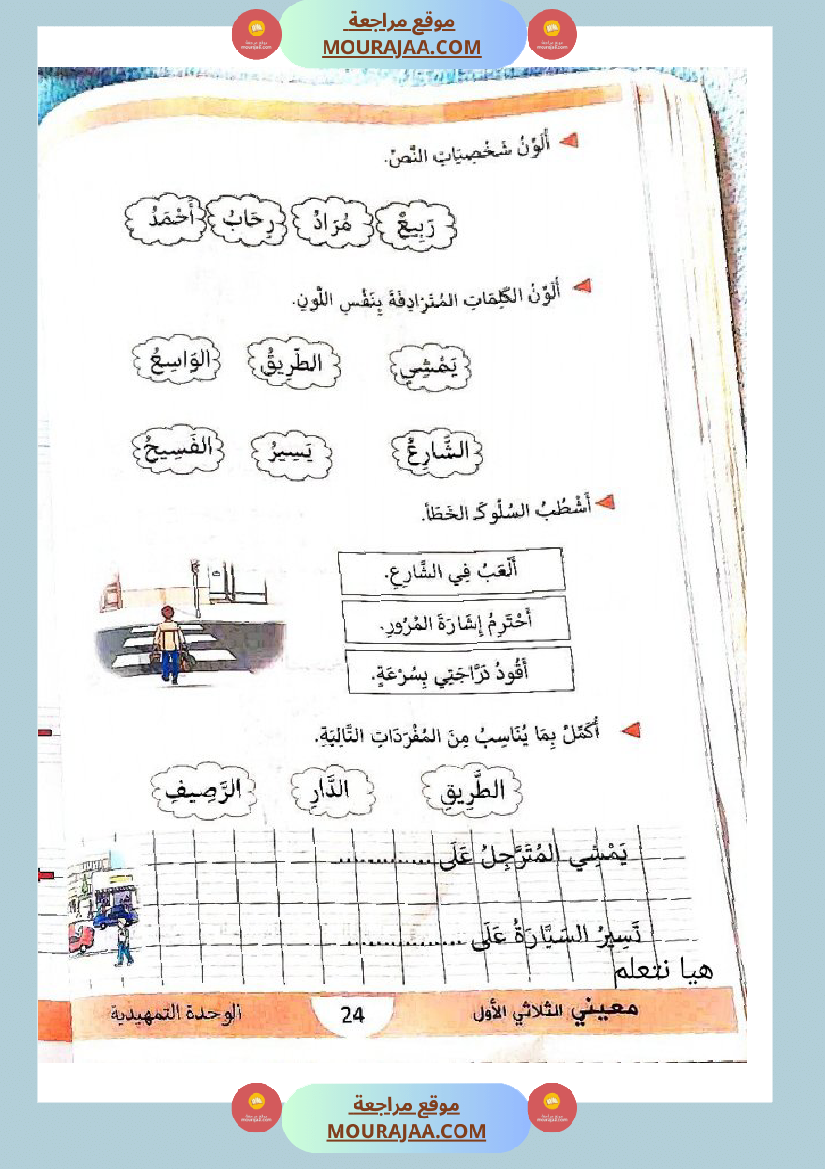 موقع مراجعة
MOURAJAA.COM
أُلَوِّنُ شَخْصِيَاتِ النَّصِّ.
رَبِيعٌ مُرَادُ رِحَابُ أَحْمَدُ
أُلَوِّنُ الكَلِمَاتِ المُتَرَادِفَةَ بِنَفْسِ اللَّونِ.
يَمْشِي الطَّرِيقُ الوَاسِعُ
الشَّارِعُ يَسِيرُ الفَسِيحُ
أَشْطُبُ السُلُوكَ الخَطَأَ.
أَلْعَبُ فِي الشَّارِعِ.
أَحْتَرِمُ إِشَارَةَ المُرُورِ.
أَقُودُ دَرَّاجَتِي بِسُرْعَةٍ.
أُكَمِّلُ بِمَا يُنَاسِبُ مِنَ المُفْرَدَاتِ التَّالِيَةِ.
الطَّرِيقِ الدَّارِ الرَّصِيفِ
يَمْشِي المُتَرَجِّلُ عَلَى .............
تَسِيرُ السَيَّارَةُ عَلَى ................
هيا نتعلم
معيني الثلاثي الأول 24 الوحدة التمهيدية
موقع مراجعة
MOURAJAA.COM